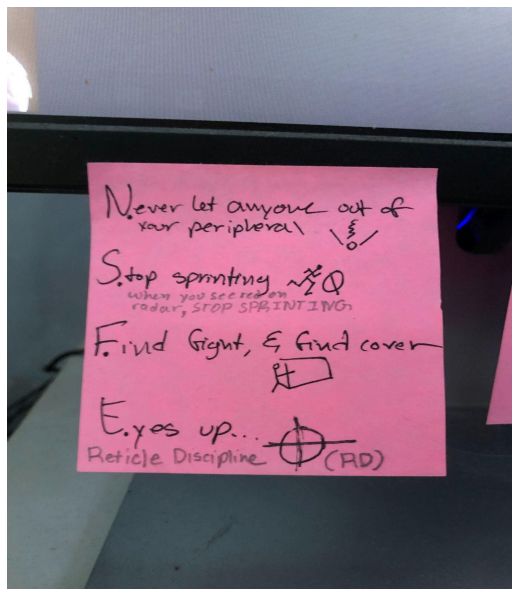 N.ever let anyone out of
your peripheral
S.top sprinting
when you see red on
radar, STOP SPRINTING
F.ind fight, & find cover
E.yes up...
Reticle Discipline (RD)